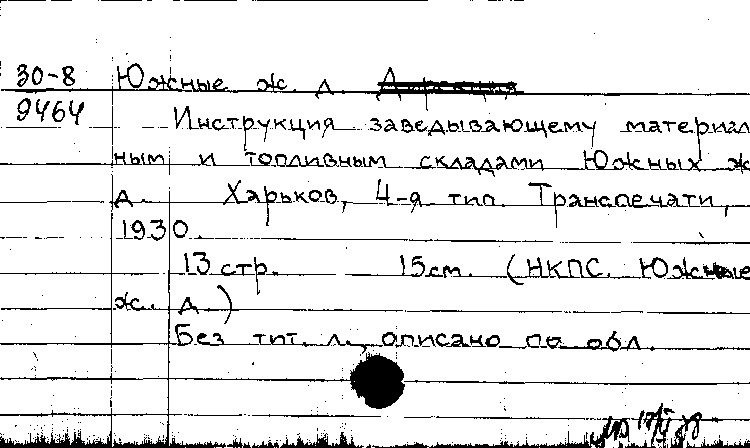 30-8 Южные ж. д. Дирекция
9464
Инструкция заведывающему материал
ным и топливным складами Южных ж
д. Харьков, 4-я тип. Транспечати,
1930.
13 стр. 15см. (НКПС. Южные
ж. д.)
Без тит. л., описано по обл.